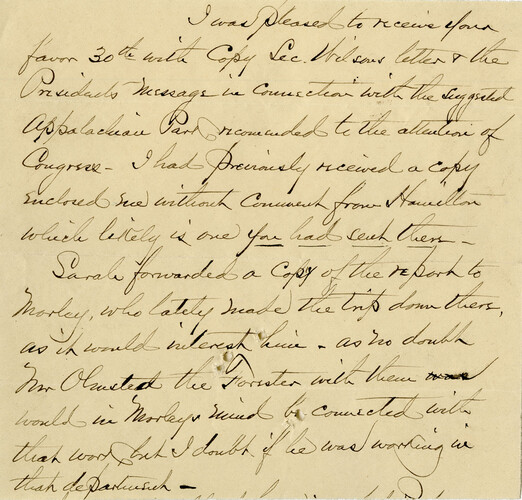 I was pleased to receive your
favor 30th with Copy Sec. Wilsons letter & the
Presidents message in connection with the suggested
Appalachian Park recomended to the attention of
Congress - I had previously received a copy
enclosed me without comment from Hamilton
which likely is one you had sent them -
Sarah forwarded a copy of the report to
Morley, who lately made the trip down there,
as it would interest him - as no doubt
Mr Olmsted the Forister with them was
would in Morleys mind be connected with
that work, but I doubt if he was working in
that department -